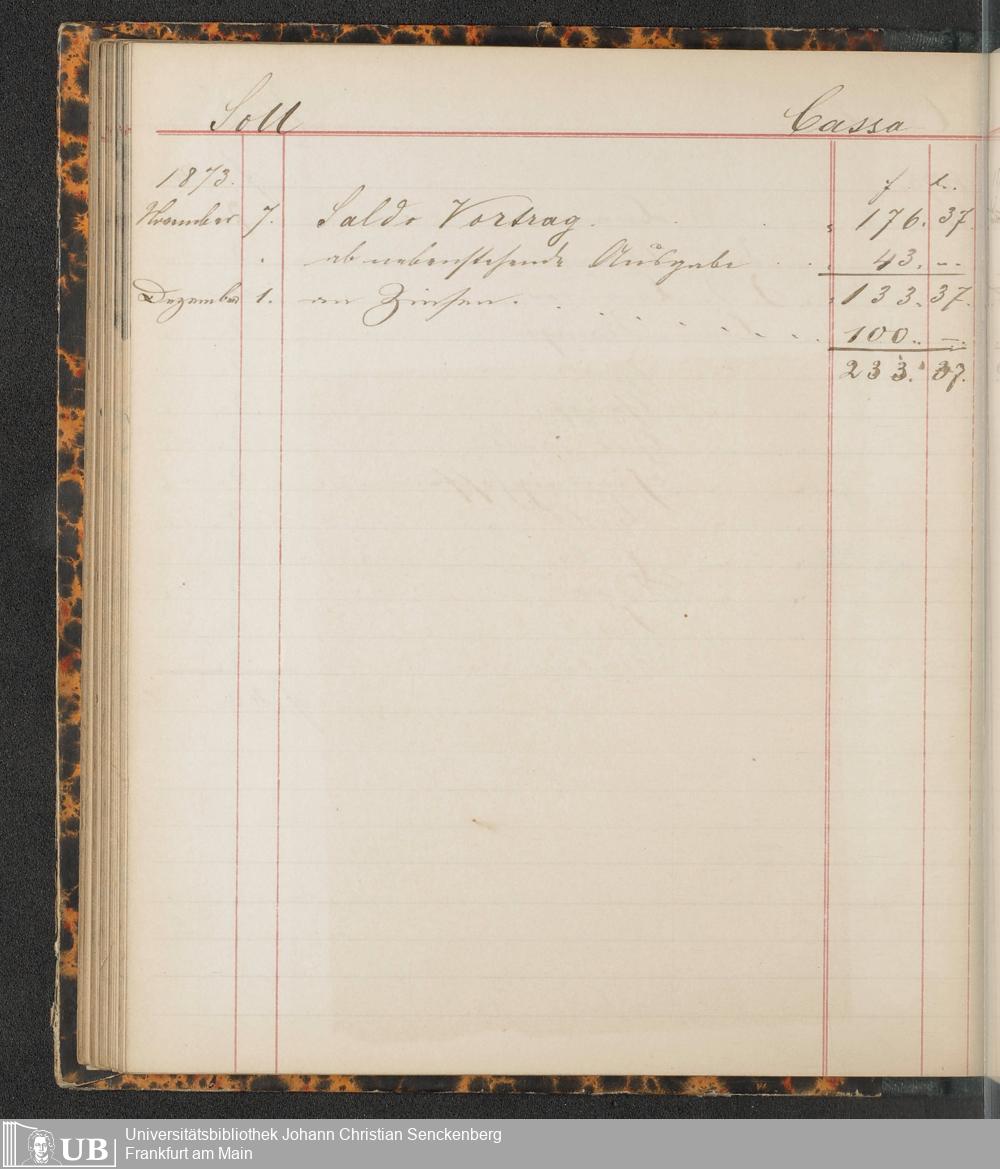 Soll Cassa
1873. f. x.
November 7. Saldo Vortrag. " 176. 37.
" ab nebenstehende Ausgabe . . " 43. --
Dezember 1. an Zinsen. . . . . . . . . " 133. 37.
100. --.
233. 37.
UB Universitätsbibliothek Johann Christian Senckenberg
Frankfurt am Main